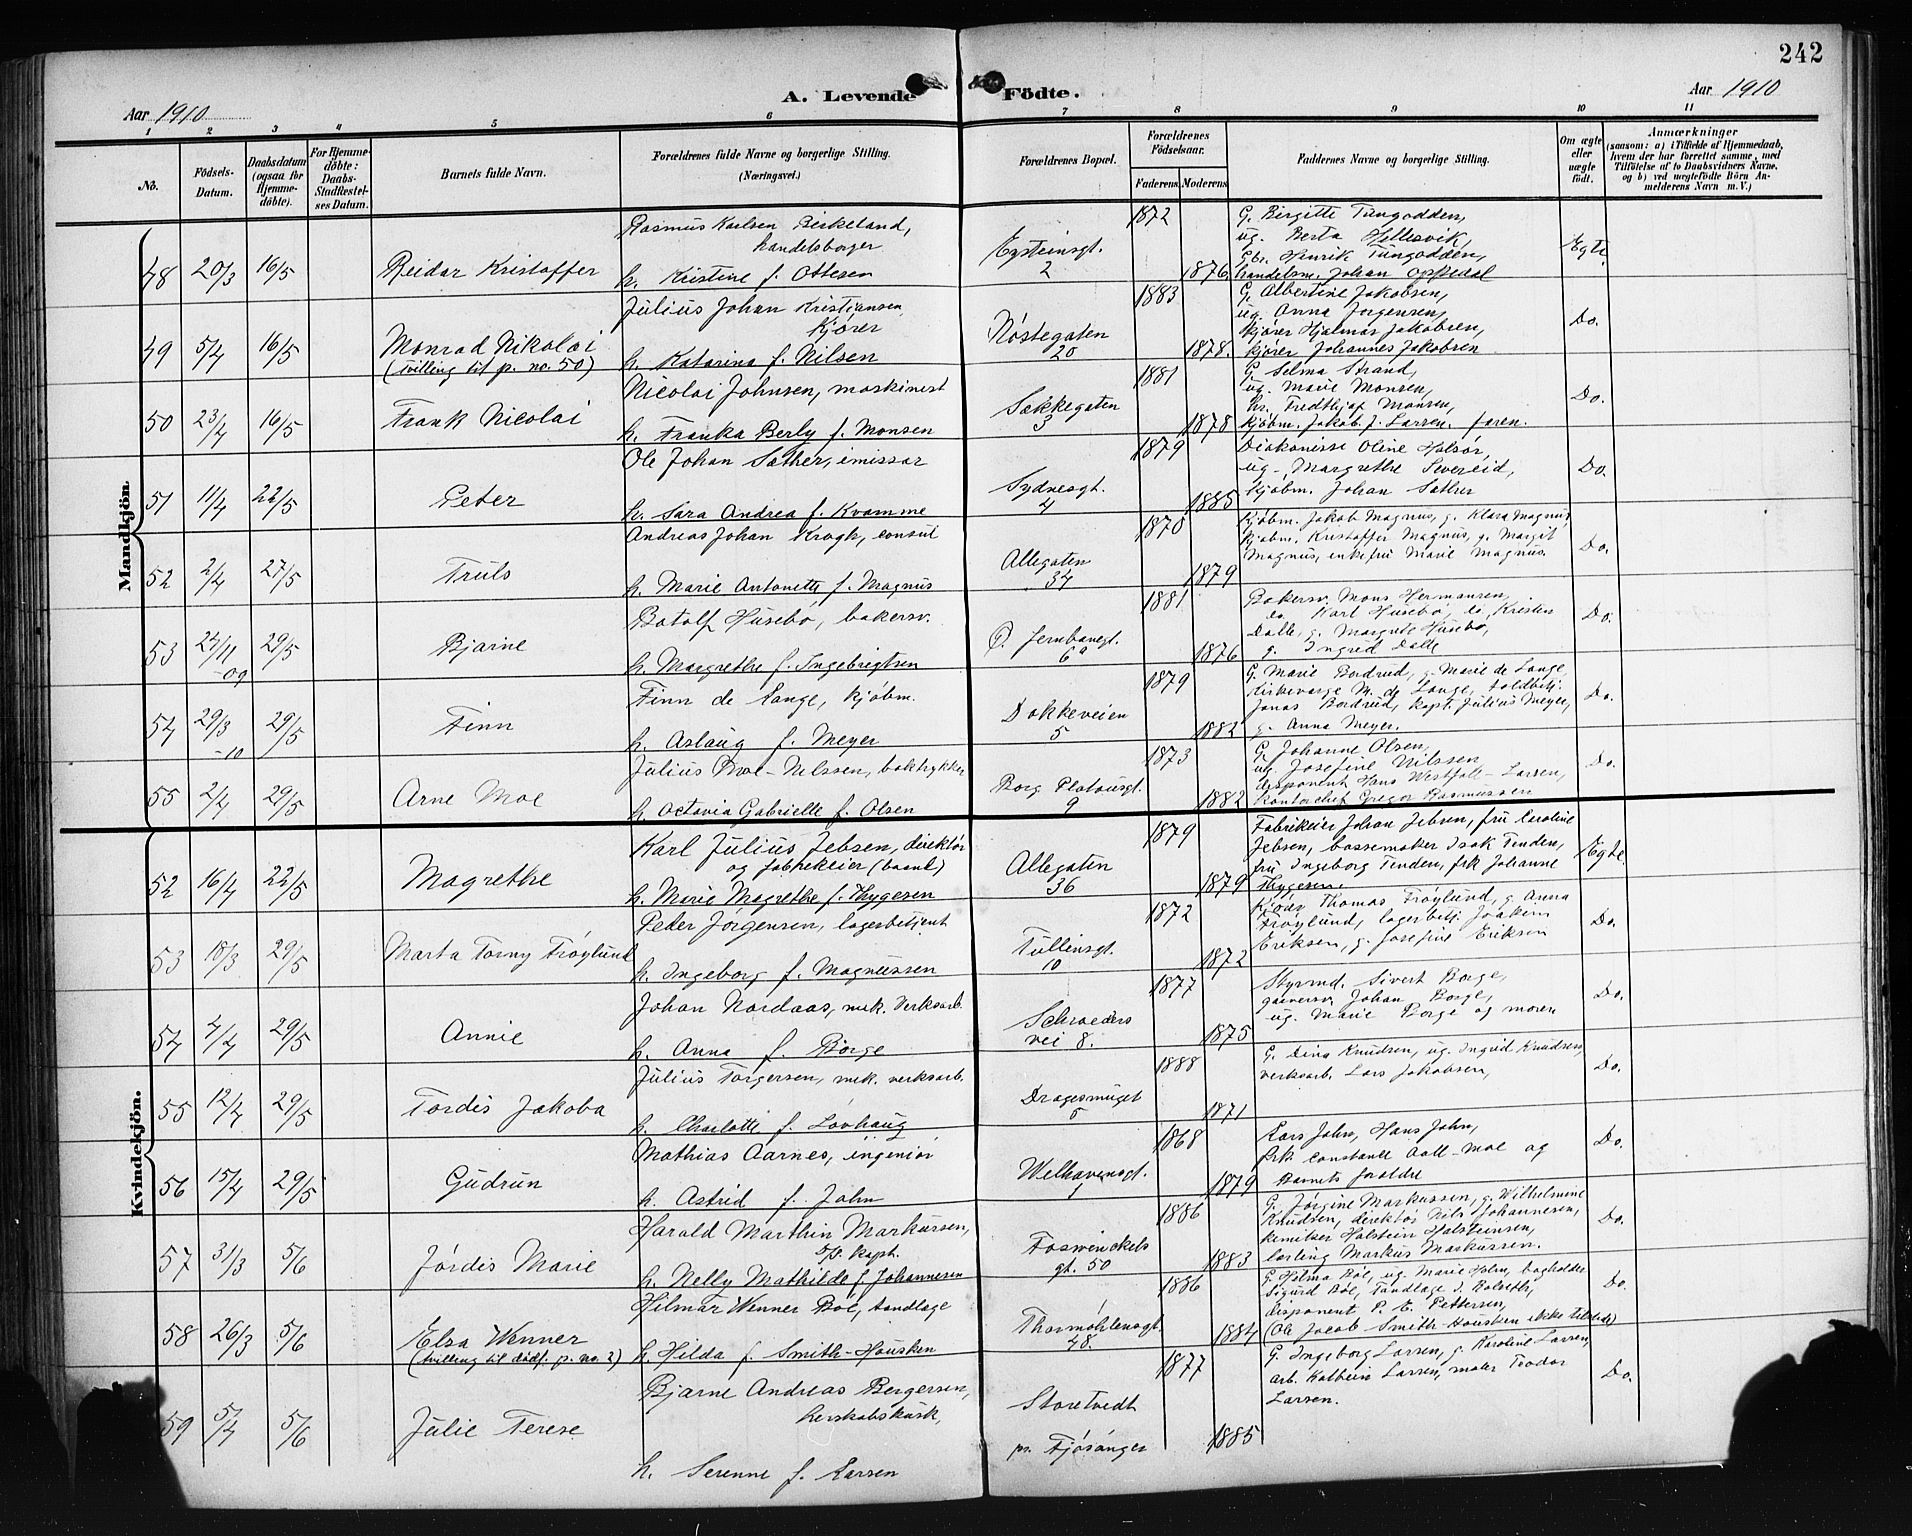 242
Aar 1910
A. Levende Födte.
Aar 1910
1 2 3 4 5 6 7 8 9 10 11
No.
Födsels-Datum.
Daabsdatum (ogsaa for Hjemme-döbte).
For Hjemme-döbte: Daabs-Stadfæstel-ses Datum.
Barnets fulde Navn.
Forældrenes fulde Navne og borgerlige Stilling. (Næringsvei.)
Forældrenes Bopæl.
Forældrenes Födselsaar.
Faderens Moderens
Faddernes Navne og borgerlige Stilling.
Om ægte eller uægte födt.
Anmærkninger
(saasom: a) i Tilfælde af Hjemmedaab, hvem der har forrettet samme, med Tilföielse af to Daabsvidners Navne, og b) ved uægtefödte Börn An-melderens Navn m. V.)
Mandkjön.
48 20/3 16/5 Reidar Kristoffer
Rasmus Karlsen Birkeland, handelsborger
h. Kristine f. Ottesen
Eysteinsgt. 2
1872 1876
G. Birgitte Tungodden,
ug. Berta Hellesvik,
Gbr. Henrik Tungodden,
handelsm. Johan Oppedal
Egte.
49 5/4 16/5 Monrad Nikolai
(tvilling til p. no. 50)
Julius Johan Kristiansen, kjører
h. Katarina f. Nilsen
Nøstegaten 20
1883 1878.
G. Albertine Jakobsen,
ug. Anna Jørgensen,
kjører Hjalmar Jakobsen,
kjører Johannes Jakobsen
Do.
50 23/4 16/5 Frank Nicolai
Nicolai Johnsen, maskinist
h. Franka Berly f. Monsen
Sækkegaten 3
1881 1878
G. Selma Strand,
ug. Marie Monsen,
hr. Fredthjof Monsen,
kjøbm. Jakob J. Larsen. faren.
Do.
51 11/4 22/5 Peter
Ole Johan Sæther, emissær
h. Sara Andrea f. Kvamme
Sydnesgt. 4
1879 1885
Diakonisse Oline Holsør,
ug. Margrethe Severeid,
kjøbm. Johan Sæther
Do.
52 2/4 27/5 Truls
Andreas Johan Krogh, consul
h. Marie Antonette f. Magnus
Allegaten 34
1870 1879
Kjøbm. Jakob Magnus, g. Klara Magnus,
kjøbm. Kristoffer Magnus, g. Margit
Magnus, enkefru Marie Magnus.
Do.
53 27/11-09 29/5 Bjarne
Botolf Husebø, bakersv.
h. Margrethe f. Ingebrigtsen
Ø. Jernbanegt. 6a
1881 1876
Bakersv. Mons Hermansen,
do. Karl Husebø, do. Kristen
Dalle, g. Margrete Husebø,
g. Ingrid Dalle
Do.
54 29/3-10 29/5 Finn
Finn de Lange, kjøbm.
h. Aslaug f. Meyer
Dokkeveien 5
1879 1882
G. Marie Bordrud, g. Marie de Lange
kirkeverge M. de Lange, toldbetj.
Jonas Bordrud, kapt. Julius Meyer,
g. Anna Meyer.
Do.
55 2/4 29/5 Arne Moe
Julius Moe-Nilssen, boktrykker
h. Octavia Gabrielle f. Olsen
Borg. Platousgt. 9
1873 1882
G. Johanne Olsen,
ug. Josefine Nilssen
disponent Hans Westfall-Larsen,
Kontorchef Greger Rasmussen
Do.
Kvindekjön.
52 16/4 22/5 Magrethe
Karl Julius Jebsen, direktør og fabrikeier (baand)
h. Marie Magrethe f. Thygesen
Allegaten 36
1879 1879
Fabrikeier Johan Jebsen, fru Caroline
Jebsen, bøssemaker Isak Tenden,
fru Ingeborg Tenden, frk Johanne
Thygesen.
Egte.
53 18/3 29/5 Marta Torny Frøylund
Peder Jørgensen, lagerbetjent
h. Ingeborg f. Magnussen
Tullinsgt. 10
1872 1872
Kjører Thomas Frøylund, g. Anna
Frøylund, lagerbetj. Joakim
Eriksen, g. Josefine Eriksen
Do.
54 4/4 29/5 Annie
Johan Nordaas, mek. Verksarb.
h. Anna f. Borge
Schrøders vei 8.
1877 1875
Styrmd. Sivert Borge,
gaversv. Johan Borge,
ug. Marie Borge og moren
Do.
55 12/4 29/5 Tordis Jakoba
Julius Torgersen, mek. verksarb.
h. Charlotte f. Løvhaug
Dragesmuget 5
1888 1871
G. Dina Knudsen, ug. Ingrid Knudsen,
verksarb. Lars Jakobsen,
Do.
56 15/4 29/5 Gudrun
Mathias Aarnes, ingeniør
h. Astrid f. Jahn
Welhavensgt.
1868 1879
Lars Jahn, Hans Jahn,
frk. Constance Aall-Moe og
Barnets forældre
Do.
57 31/3 5/6 Jørdis Marie
Harald Marthin Markussen, S/S. kapt.
h. Nelly Mathilde f. Johannesen
Foswinckels gt. 50
1886 1883
G. Jørgine Markussen, g. Wilhelmine
Knudsen, direktør Nils Johannesen,
kemiker Holstein Holsteinsen,
lærling Markus Markussen.
Do.
58 26/3 5/6 Elsa Wenner
(tvilling til dødf. p. no. 2)
Hilmar Wenner Bøe, tandlæge
h. Hilda f. Smith-Housken
Thormøhlensgt. 48.
1886 1884
G. Helma Bøe, ug. Marie Holm, bogholder
Sigurd Bøe, tandlæge J. Rolseth,
disponent P. E. Pettersen,
(Ole Jacob Smith-Housken ikke tilstede)
Do.
59 5/4 5/6 Julie Terese
Bjarne Andreas Bergersen, herskabskusk,
h. Serenne f. Larsen
Storetvedt
pr. Fjøsanger
1877 1885
G. Ingeborg Larsen, g. Karoline Larsen,
arb. Kolbein Larsen, maler Teodor
Larsen.
Do.